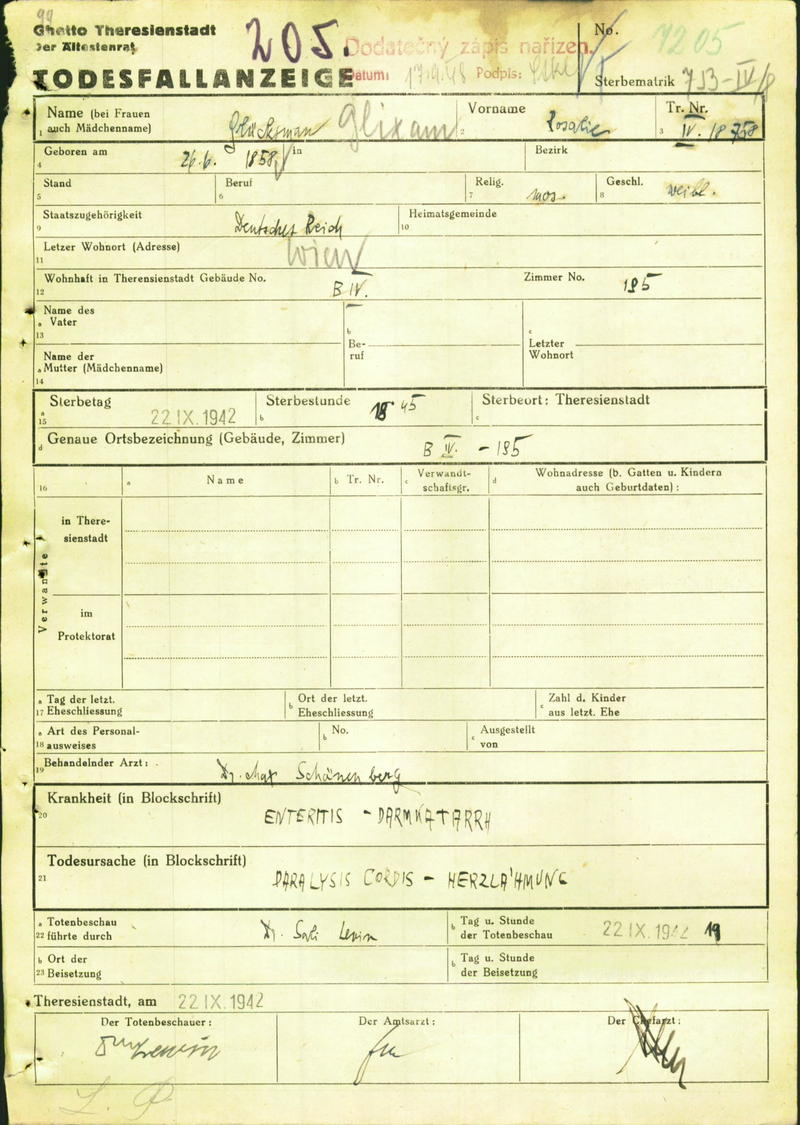 Ghetto Theresienstadt
Der Ältestenrat
205.
Dodatečný zápis nařízen.
Datum: 17.9.48 Podpis:
No. 7205
TODESFALLANZEIGE
Sterbematrik 713-IV/8
Name (bei Frauen auch Mädchenname) Glücksman Glixam
1
Vorname Rosalie
2
Tr. Nr. IV. 18 758
3
Geboren am 26.6. 1858 in
4
Bezirk
Stand
5
Beruf
6
Relig. mos.
7
Geschl. weibl.
8
Staatszugehörigkeit Deutsches Reich
9
Heimatsgemeinde
10
Letzer Wohnort (Adresse) Wien
11
Wohnhaft in Therensienstadt Gebäude No. B IV.
12
Zimmer No. 185
Name des
a Vater
13
b
Be-
ruf
c
Letzter
Wohnort
Name der
a Mutter (Mädchenname)
14
Sterbetag 22 IX. 1942
a
15
Sterbestunde 18 45
b
Sterbeort: Theresienstadt
c
d Genaue Ortsbezeichnung (Gebäude, Zimmer) B IV. - 185
16
a Name
b Tr. Nr.
c Verwandt-
schaftsgr.
d Wohnadresse (b. Gatten u. Kindern
auch Geburtdaten) :
Verwandte
in There-
sienstadt
im
Protektorat
a Tag der letzt.
17 Eheschliessung
b Ort der letzt.
Eheschliessung
c Zahl d. Kinder
aus letzt. Ehe
a Art des Personal-
18 ausweises
b No.
c Ausgestellt
von
Behandelnder Arzt: Dr. Max Schönenberg
19
Krankheit (in Blockschrift)
20
ENTERITIS - DARMKATARRH
Todesursache (in Blockschrift)
21
PARALYSIS CORDIS - HERZLÄHMUNG
a Totenbeschau
22 führte durch Dr. Sali Levin
b Tag u. Stunde
der Totenbeschau 22 IX. 1942 19
b Ort der
23 Beisetzung
b Tag u. Stunde
der Beisetzung
Theresienstadt, am 22 IX. 1942
Der Totenbeschauer:
Der Amtsarzt:
Der Chefarzt: